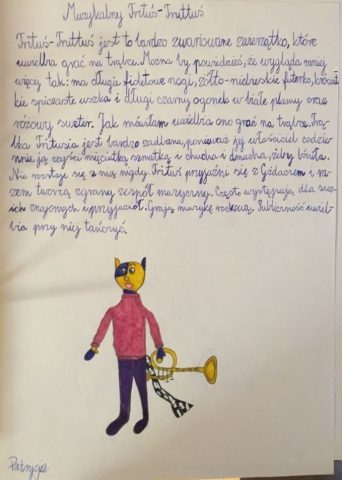 Muzykalny Frituś-Frittuś
Frituś-Frittuś jest to bardzo zwariowane zwierzątko, które
uwielbia grać na trąbce. Można by powiedzieć, że wygląda mniej
więcej tak: ma długie fioletowe nogi, żółto-niebieskie futerko, króciut
kie spiczaste uszka i długi czarny ogonek w białe plamy oraz
różowy sweter. Jak mówiłam uwielbia ono grać na trąbce. Trą-
bka Fritusia jest bardzo zadbana, ponieważ jej właściciel codzien-
nie ją czyści mięciutką szmatką i chucha i dmucha, żeby lśniła.
Nie rozstaje się z nią nigdy. Frituś przyjaźni się z i ra-
zem tworzą zgrany zespół muzyczny. Często występują dla swo-
ich znajomych i przyjaciół. Grają muzykę rockową. Publiczność uwiel-
bia przy niej tańczyć.
Patrycja